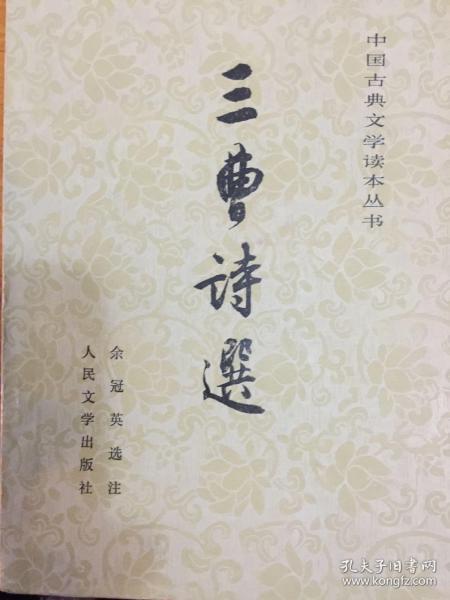 中国古典文学读本丛书
三曹詩選
余冠英选注
人民文学出版社
孔夫子旧书网
www.kongfz.com